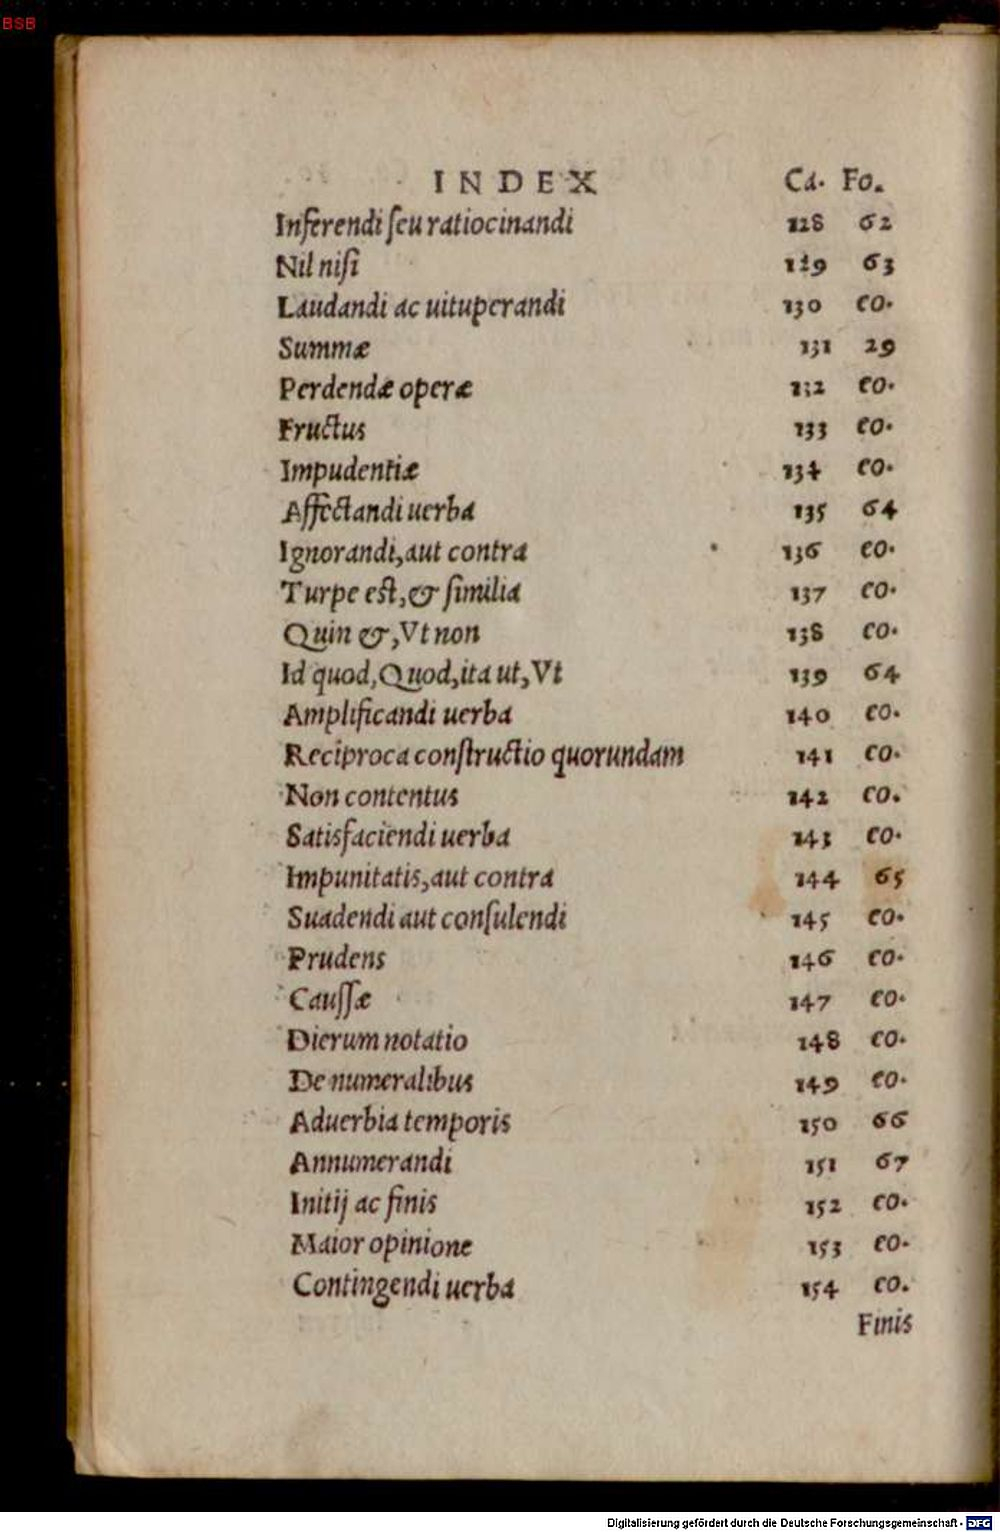 BSB
INDEX Ca. Fo.
Inferendi ſeu ratiocinandi 128 62
Nil niſi 129 63
Laudandi ac uituperandi 130 eo.
Summæ 131 29
Perdendæ operæ 132 eo.
Fructus 133 eo.
Impudentiæ 134 eo.
Affectandi uerba 135 64
Ignorandi, aut contra 136 eo.
Turpe est, & ſimilia 137 eo.
Quin &, Vt non 138 eo.
Id quod, Quod, ita ut, Vt 139 64
Amplificandi uerba 140 eo.
Reciproca conſtructio quorundam 141 eo.
Non contentus 142 eo.
Satisfaciendi uerba 143 eo.
Impunitatis, aut contra 144 65
Suadendi aut conſulendi 145 eo.
Prudens 146 eo.
Cauſſæ 147 eo.
Dierum notatio 148 eo.
De numeralibus 149 eo.
Aduerbia temporis 150 66
Annumerandi 151 67
Initij ac finis 152 eo.
Maior opinione 153 eo.
Contingendi uerba 154 eo.
Finis
Digitalisierung gefördert durch die Deutsche Forschungsgemeinschaft - DFG